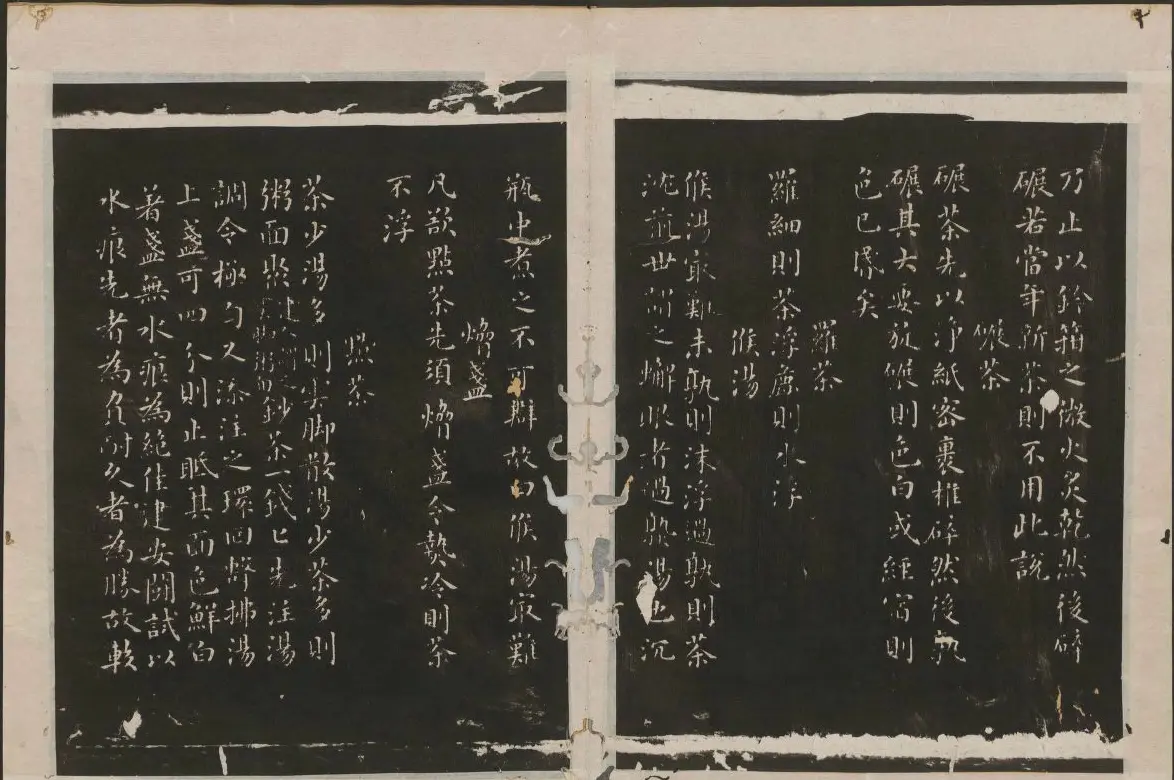 乃止以鈐箝之微火炙乾然後碎
碾若當年新茶則不用此說
碾茶
碾茶先以淨紙密裹椎碎然後孰
碾其大要旋碾則色白或經宿則
色已昬矣
羅茶
羅細則茶浮麄則水浮
候湯
候湯㝡難未孰則沫浮過孰則茶
沈前世謂之蠏眼者過孰湯也沉
瓶中煮之不可辯故曰候湯㝡難
熁盞
凡欲點茶先須熁盞令熱冷則茶
不浮
點茶
茶少湯多則雲脚散湯少茶多則
粥面聚建人謂之雲脚粥面鈔茶一錢匕先注湯
調令極匀又添注之環回擊拂湯
上盞可四分則止眡其面色鮮白
著盞無水痕為絕佳建安鬬試以
水痕先者為負耐久者為勝故較